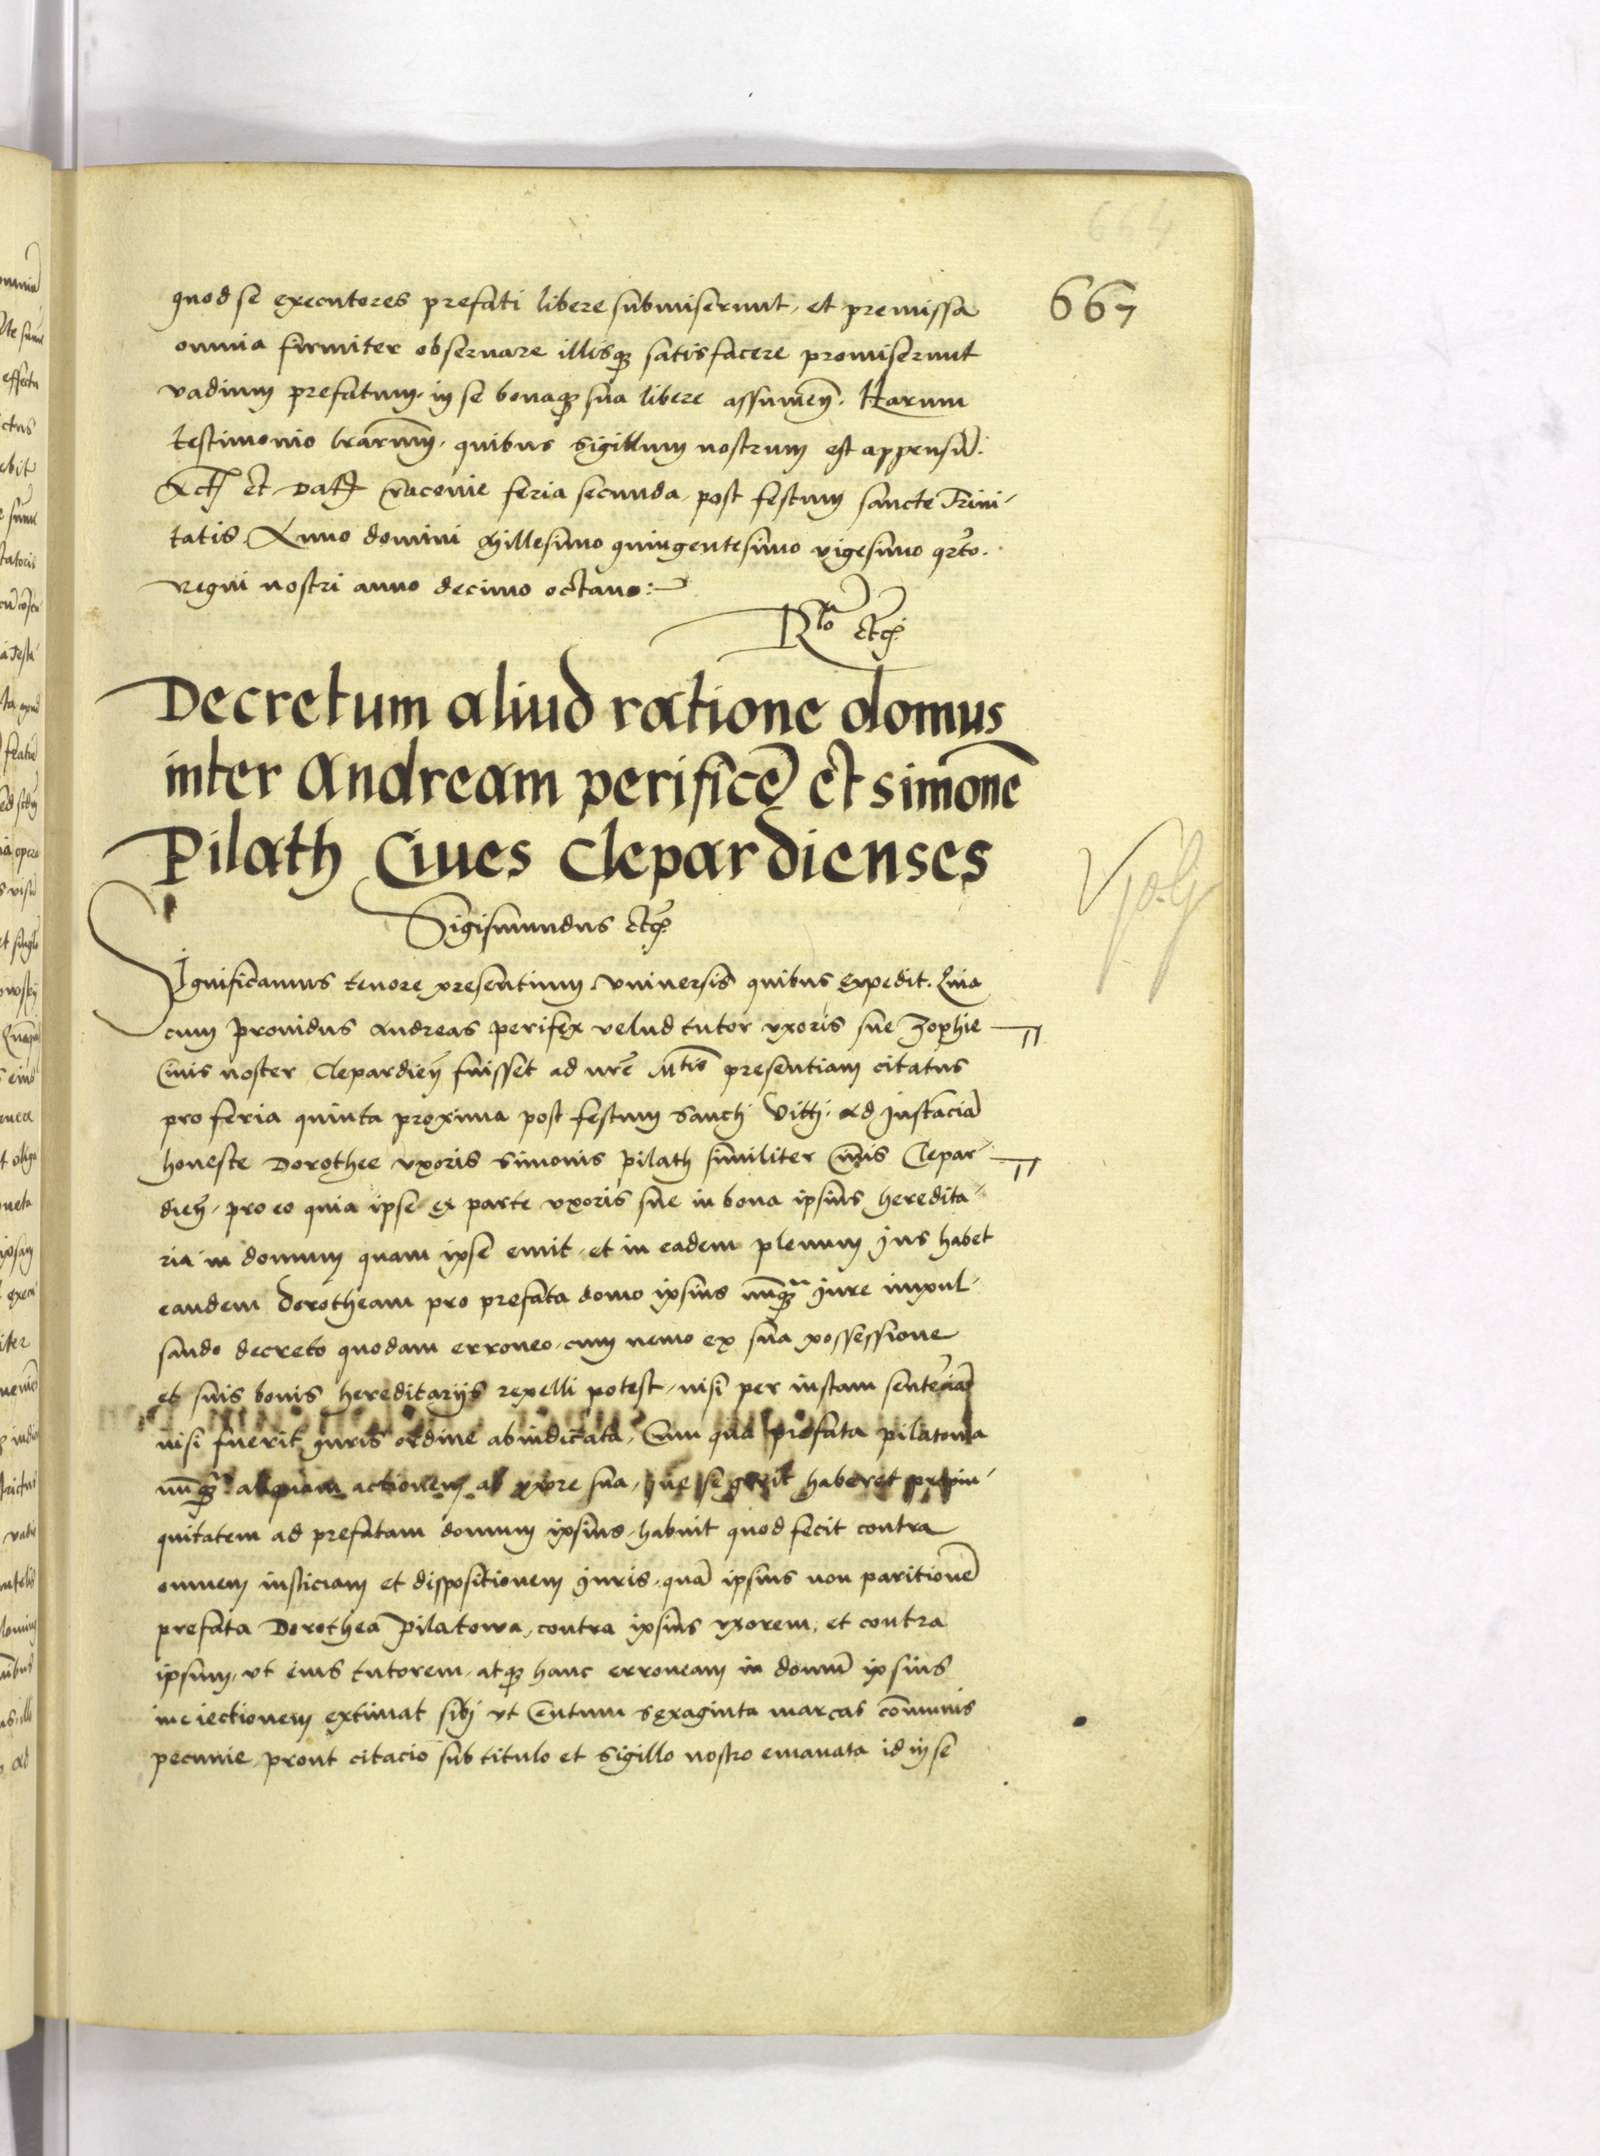 664
667
quod se executores prefati libere submiserunt, et premissa
omnia firmiter observare illisq3 satisfacere promiserunt
vadium prefatum in se bonaq3 sua libere assumen̄. Harum
testimonio l̄rarum, quibus sigillum nostrum est appensū.
Act̄ et Dat̄ Cracovie feria secunda post festum sancte Trini-
tatis Anno domini Millesimo quingentesimo vigesimo qr̄to.
regni nostri anno decimo octavo:
Rlo etc̄
Decretum aliud ratione domus
inter Andream perificē et Simonē
Pilath Cives Clepardienses
Sigismundus etc̄
Significamus tenore presentium. Universis quibus expedit. Quia
cum providus Andreas perifex velud tutor uxoris sue Zophie
Civis noster Clepardien̄ fuisset ad nr̄e Mtis presentiam citatus
pro feria quinta proxima post festum Sancti Vitti. Ad Instāciā
honeste Dorothee uxoris Simonis Pilath similiter Civis Clepar-
dien̄, pro eo quia ipse ex parte uxoris sue in bona ipsius heredita-
ria in domum quam ipse emit, et in eadem plenum Jus habet
eandem Dorotheam pro prefata domo ipsius nūq3 Jure impul-
sando decreto quodam erroneo, cum nemo ex sua possessione
et suis bonis hereditarijs repelli potest, nisi per iustam sentēciā
nisi fuerit Juris ordine abiudicata, Cum qua prefata Pilatowa
nūq3 aliquam actionem ac uxore sua, que se gerit haberet propin-
quitatem ad prefatam domum ipsius, habuit quod fecit contra
omnem iusticiam et dispositionem Juris, quā ipsius non paritionē
prefata Dorothea Pilatowa, contra ipsius uxorem, et contra
ipsum, ut eius tutorem, atq3 hanc erroneam in domū ipsius
inieiectionem extimat sibi ut Centum sexaginta marcas cōmunis
pecunie, prout citacio sub titulo et sigillo nostro emanata id in se